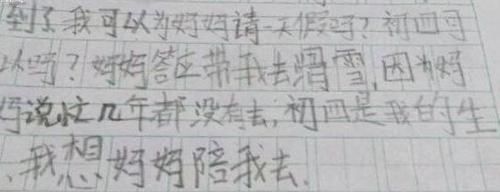 到了我可以为妈妈请一天假吗？初四可
以吗？妈妈答应带我去滑雪，因为妈
妈说忙几年都没有去，初四是我的生
，我想妈妈陪我去.